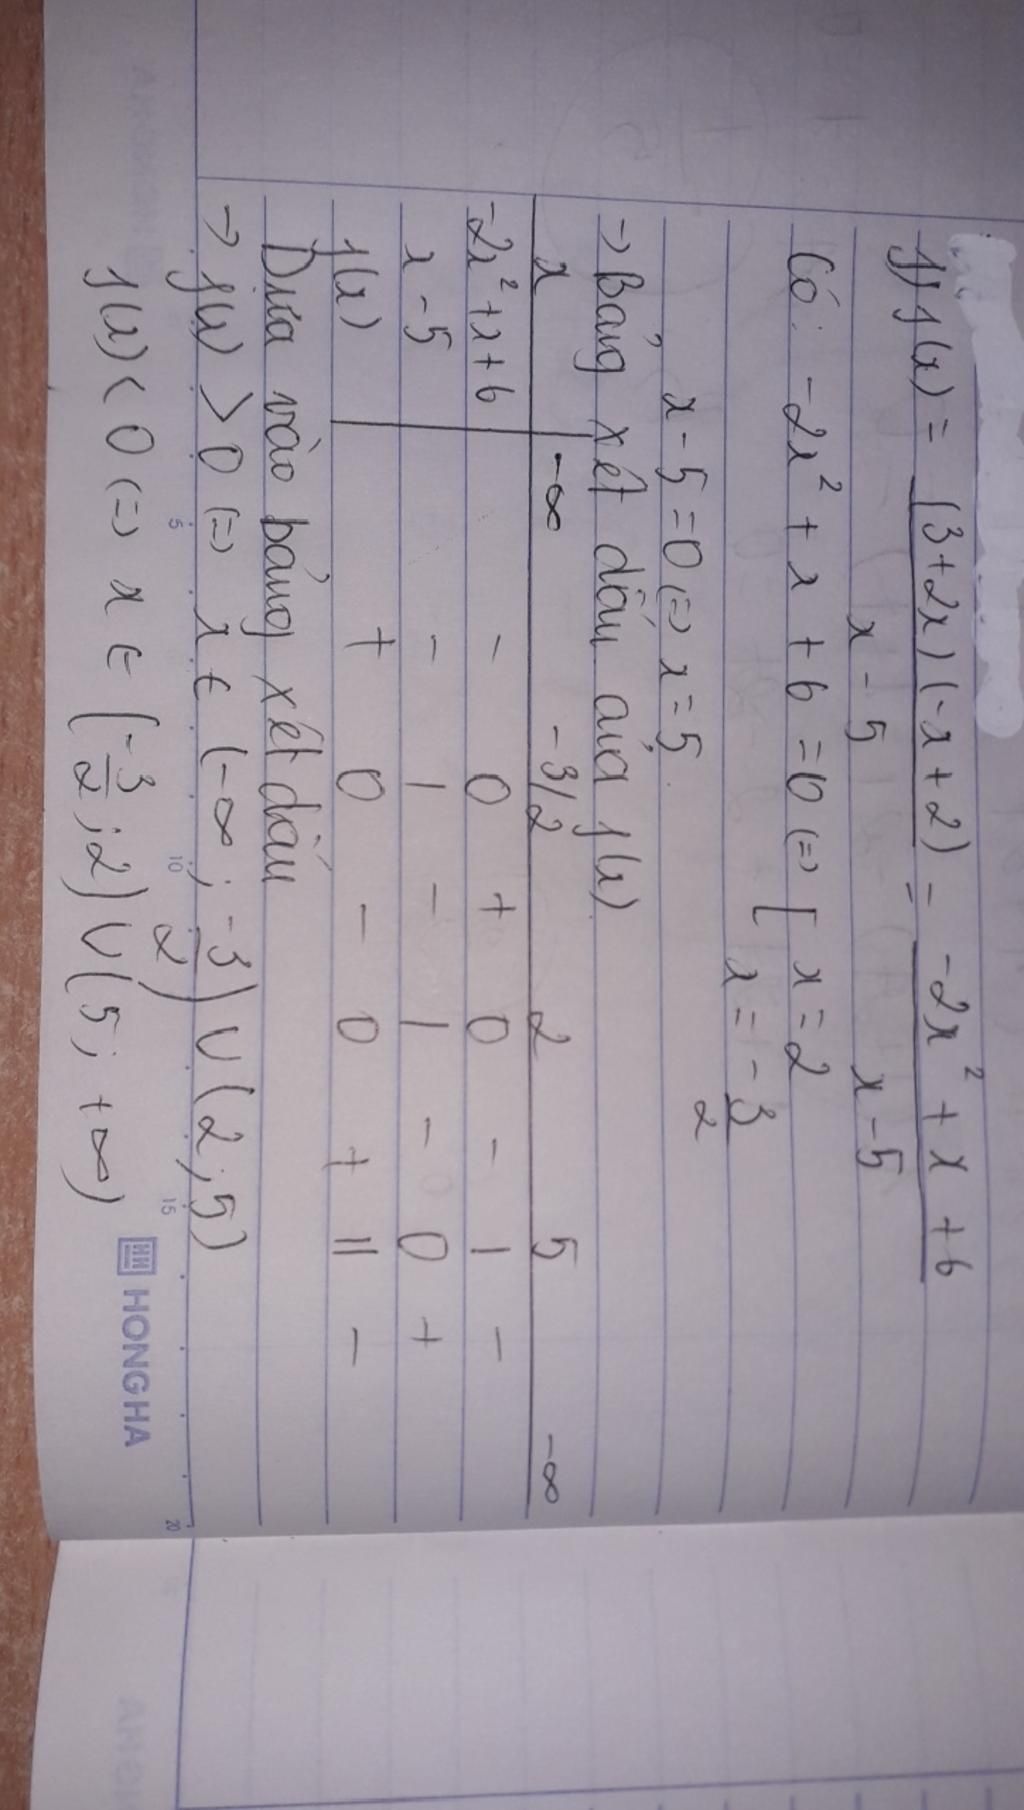 f) f(x) = (3+2x)(-x+2) / x-5 = -2x² + x + 6 / x-5
Có: -2x² + x + 6 = 0 (=) [ x = 2
x = -3/2
x - 5 = 0 (=) x = 5
-> Bảng xét dấu của f(x)
x -∞ -3/2 2 5 -∞
-2x² + x + 6 - 0 + 0 - | -
x - 5 - | - | - 0 +
f(x) + 0 - 0 + || -
Dựa vào bảng xét dấu
-> f(x) > 0 (=) x ∈ (-∞; -3/2) ∪ (2; 5)
f(x) < 0 (=) x ∈ (-3/2; 2) ∪ (5; +∞)
5 10 15 20
HONG HA